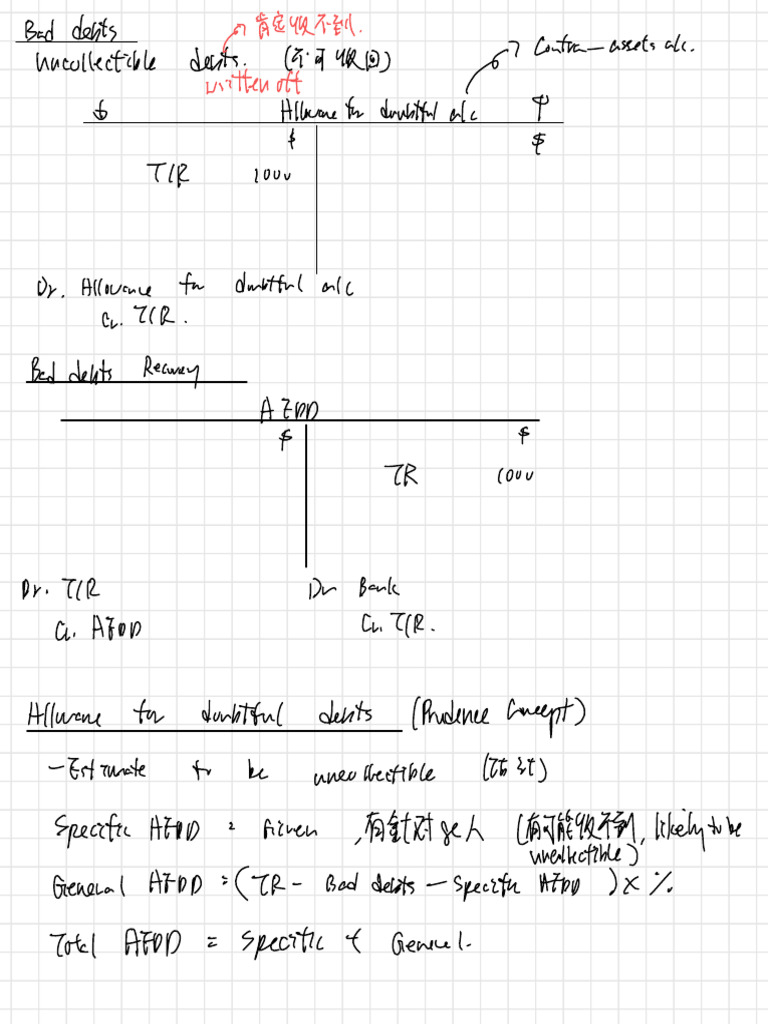 Bad debts
肯定收不到.
uncollectible debts. (不可收回)
Contra-assets a/c.
written off
Allowance for doubtful a/c
$ $
T/R 1000
Dr. Allowance for doubtful a/c
Cr. T/R.
Bad debts Recovery
AFDD
$ $
TR 1000
Dr. T/R Dr Bank
Cr. AFDD Cr. T/R.
Allowance for doubtful debts (Prudence Concept)
- Estimate to be uncollectible (估计)
Specific AFDD = Given , 有針对 人 (有可能收不到, likely to be
uncollectible)
General AFDD = (TR - Bad debts - Specific AFDD) x %.
Total AFDD = Specific + General.